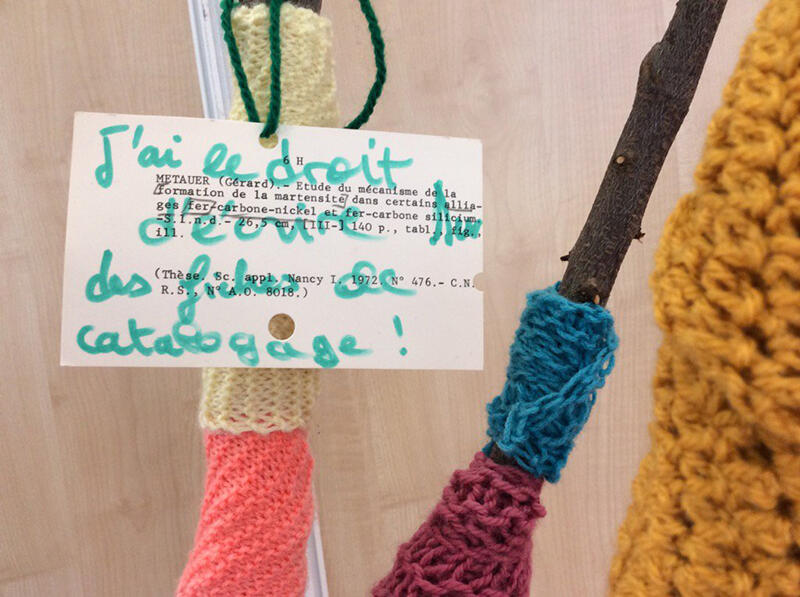 J'ai le droit
d'écrire sur
des fiches de
catalogage !
6 H
METAUER (Gérard).- Etude du mécanisme de la
formation de la martensite dans certains allia-
ges fer-carbone-nickel et fer-carbone silicium.
-S.l.n.d.- 26,5 cm, [III-] 140 p., tabl., fig.,
ill.
(Thèse. Sc. appl. Nancy I. 1972. N° 476.- C.N.
R.S., N° A.O. 8018.)